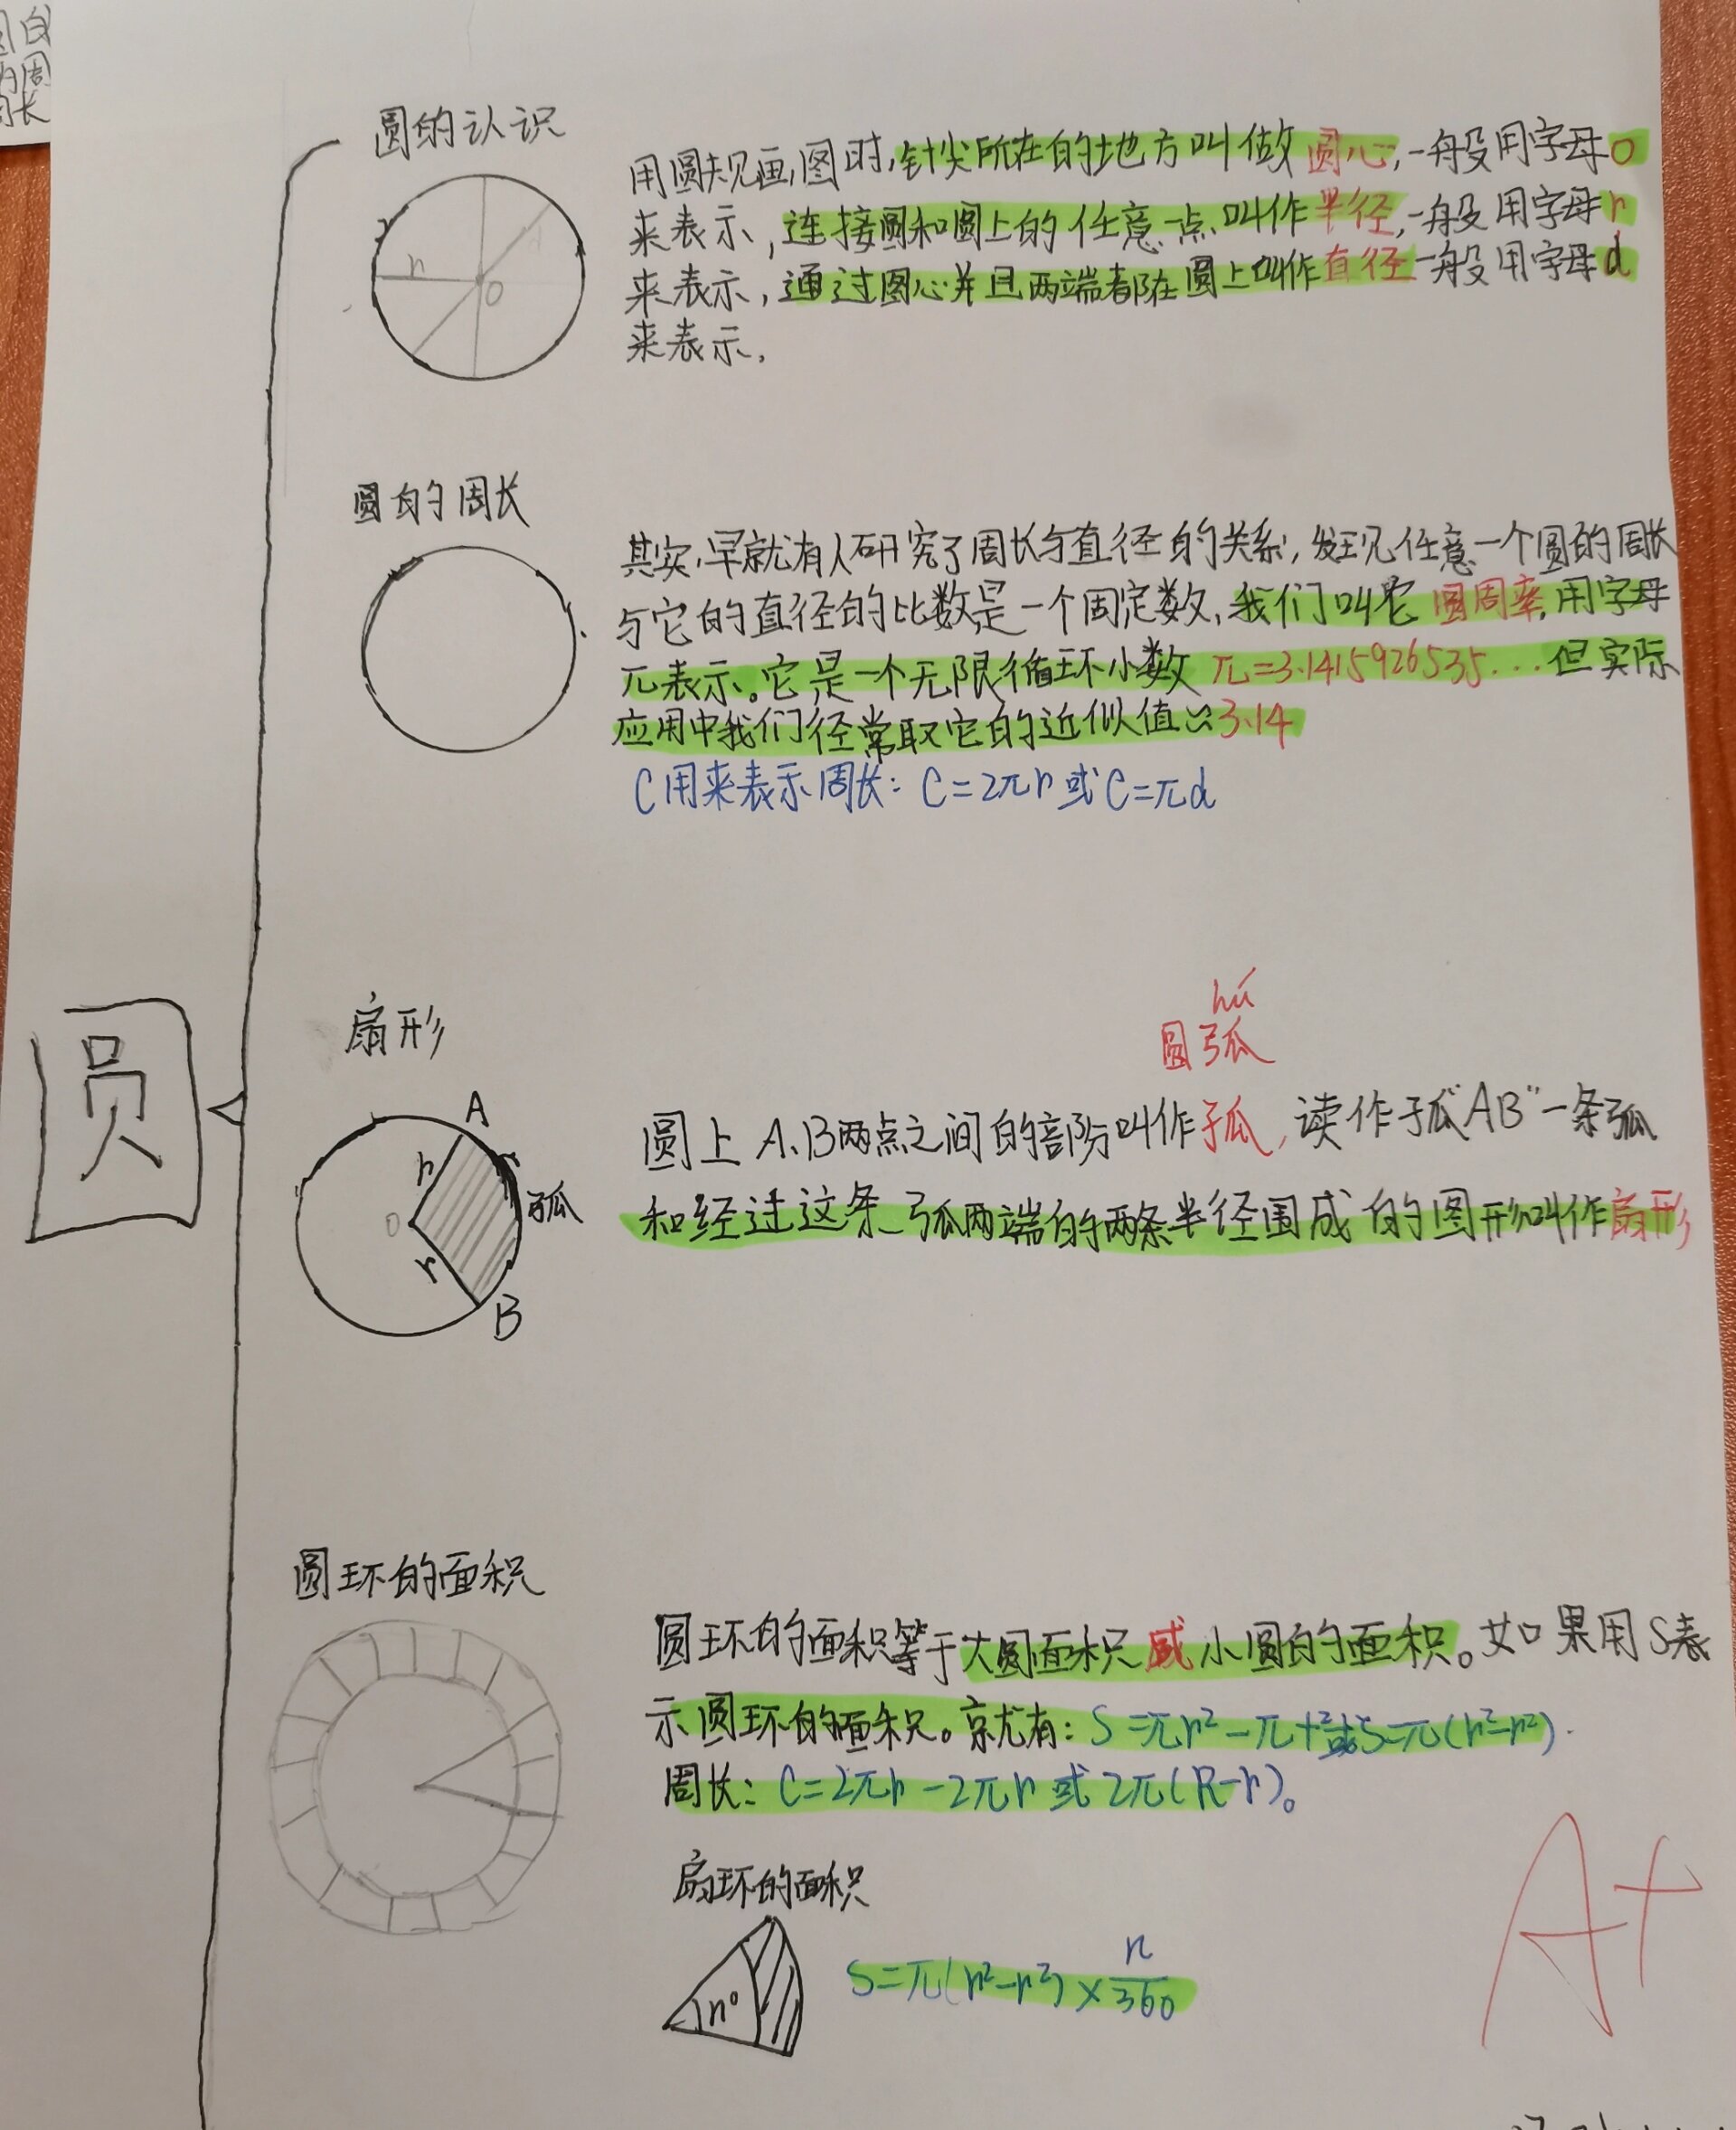 圆的认识
用圆规画图时,针尖所在的地方叫做圆心,一般用字母O
来表示,连接圆和圆上的任意一点叫作半径,一般用字母r
来表示,通过图心并且两端都在圆上叫作直径一般用字母d
来表示.
r
O
圆的周长
其实,早就有人研究了周长与直径的关系,发现任意一个圆的周长
与它的直径的比数是一个固定数,我们叫它圆周率,用字母
π表示。它是一个无限循环小数π=3.1415926535...但实际
应用中我们经常取它的近似值≈3.14
C用来表示周长:C=2πr或C=πd
圆
扇形
hú
圆弧
A
r
O
r
B
弧
圆上A、B两点之间的部分叫作弧,读作弧"AB"一条弧
和经过这条弧两端的两条半径围成的图形叫作扇形
圆环的面积
圆环的面积等于大圆面积减小圆的面积。如果用S表
示圆环的面积。就有:S=πr²-πr²或S=π(r²-r²).
周长:C=2πr-2πr或2π(R-r)。
扇环的面积
n°
S=π(r²-r²)×n/360
A+